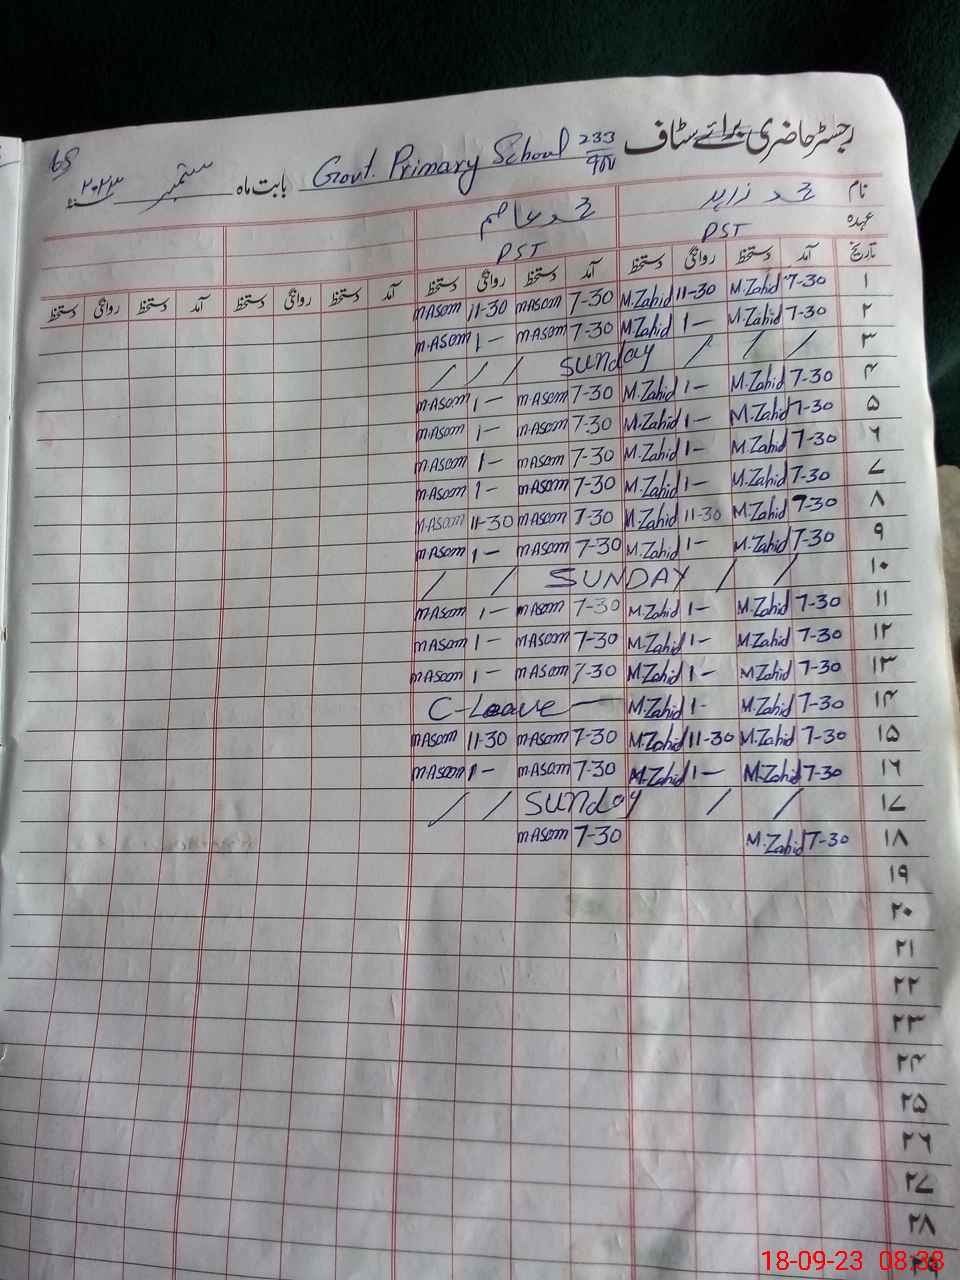 رجسٹر حاضری برائے سٹاف Govt. Primary School 233/9DN بابت ماہ ستمبر سنہ ۲۰۲۳
نام محمد زاہد محمد عاصم
عہدہ PST PST
تاریخ آمد دستخط روانگی دستخط آمد دستخط روانگی دستخط آمد دستخط روانگی دستخط آمد دستخط روانگی دستخط
۱ 7-30 M.Zahid 11-30 M.Zahid 7-30 mAsom 11-30 mAsom
۲ 7-30 M.Zahid 1- M.Zahid 7-30 m.Asom 1- m.Asom
۳ / / / Sunday / / /
۴ 7-30 M.Zahid 1- M.Zahid 7-30 m.Asom 1- m.Asom
۵ 7-30 M.Zahid 1- M.Zahid 7-30 m.Asom 1- m.Asom
۶ 7-30 M.Zahid 1- M.Zahid 7-30 mAsom 1- mAsom
۷ 7-30 M.Zahid 1- M.Zahid 7-30 mAsom 1- mAsom
۸ 7-30 M.Zahid 11-30 M.Zahid 7-30 mAsom 11-30 m.Asom
۹ 7-30 M.Zahid 1- M.Zahid 7-30 mAsom 1- mAsom
۱۰ / / SUNDAY / /
۱۱ 7-30 M.Zahid 1- M.Zahid 7-30 mAsom 1- mAsom
۱۲ 7-30 M.Zahid 1- M.Zahid 7-30 mAsom 1- mAsom
۱۳ 7-30 M.Zahid 1- M.Zahid 7-30 mAsom 1- mAsom
۱۴ 7-30 M.Zahid 1- M.Zahid C-Leave —
۱۵ 7-30 M.Zahid 11-30 M.Zahid 7-30 mAsom 11-30 mAsom
۱۶ 7-30 M.Zahid 1- M.Zahid 7-30 mAsom 1- mAsom
۱۷ / / Sunday / /
۱۸ 7-30 M.Zahid 7-30 mAsom
۱۹
۲۰
۲۱
۲۲
۲۳
۲۴
۲۵
۲۶
۲۷
۲۸
18-09-23 08:38